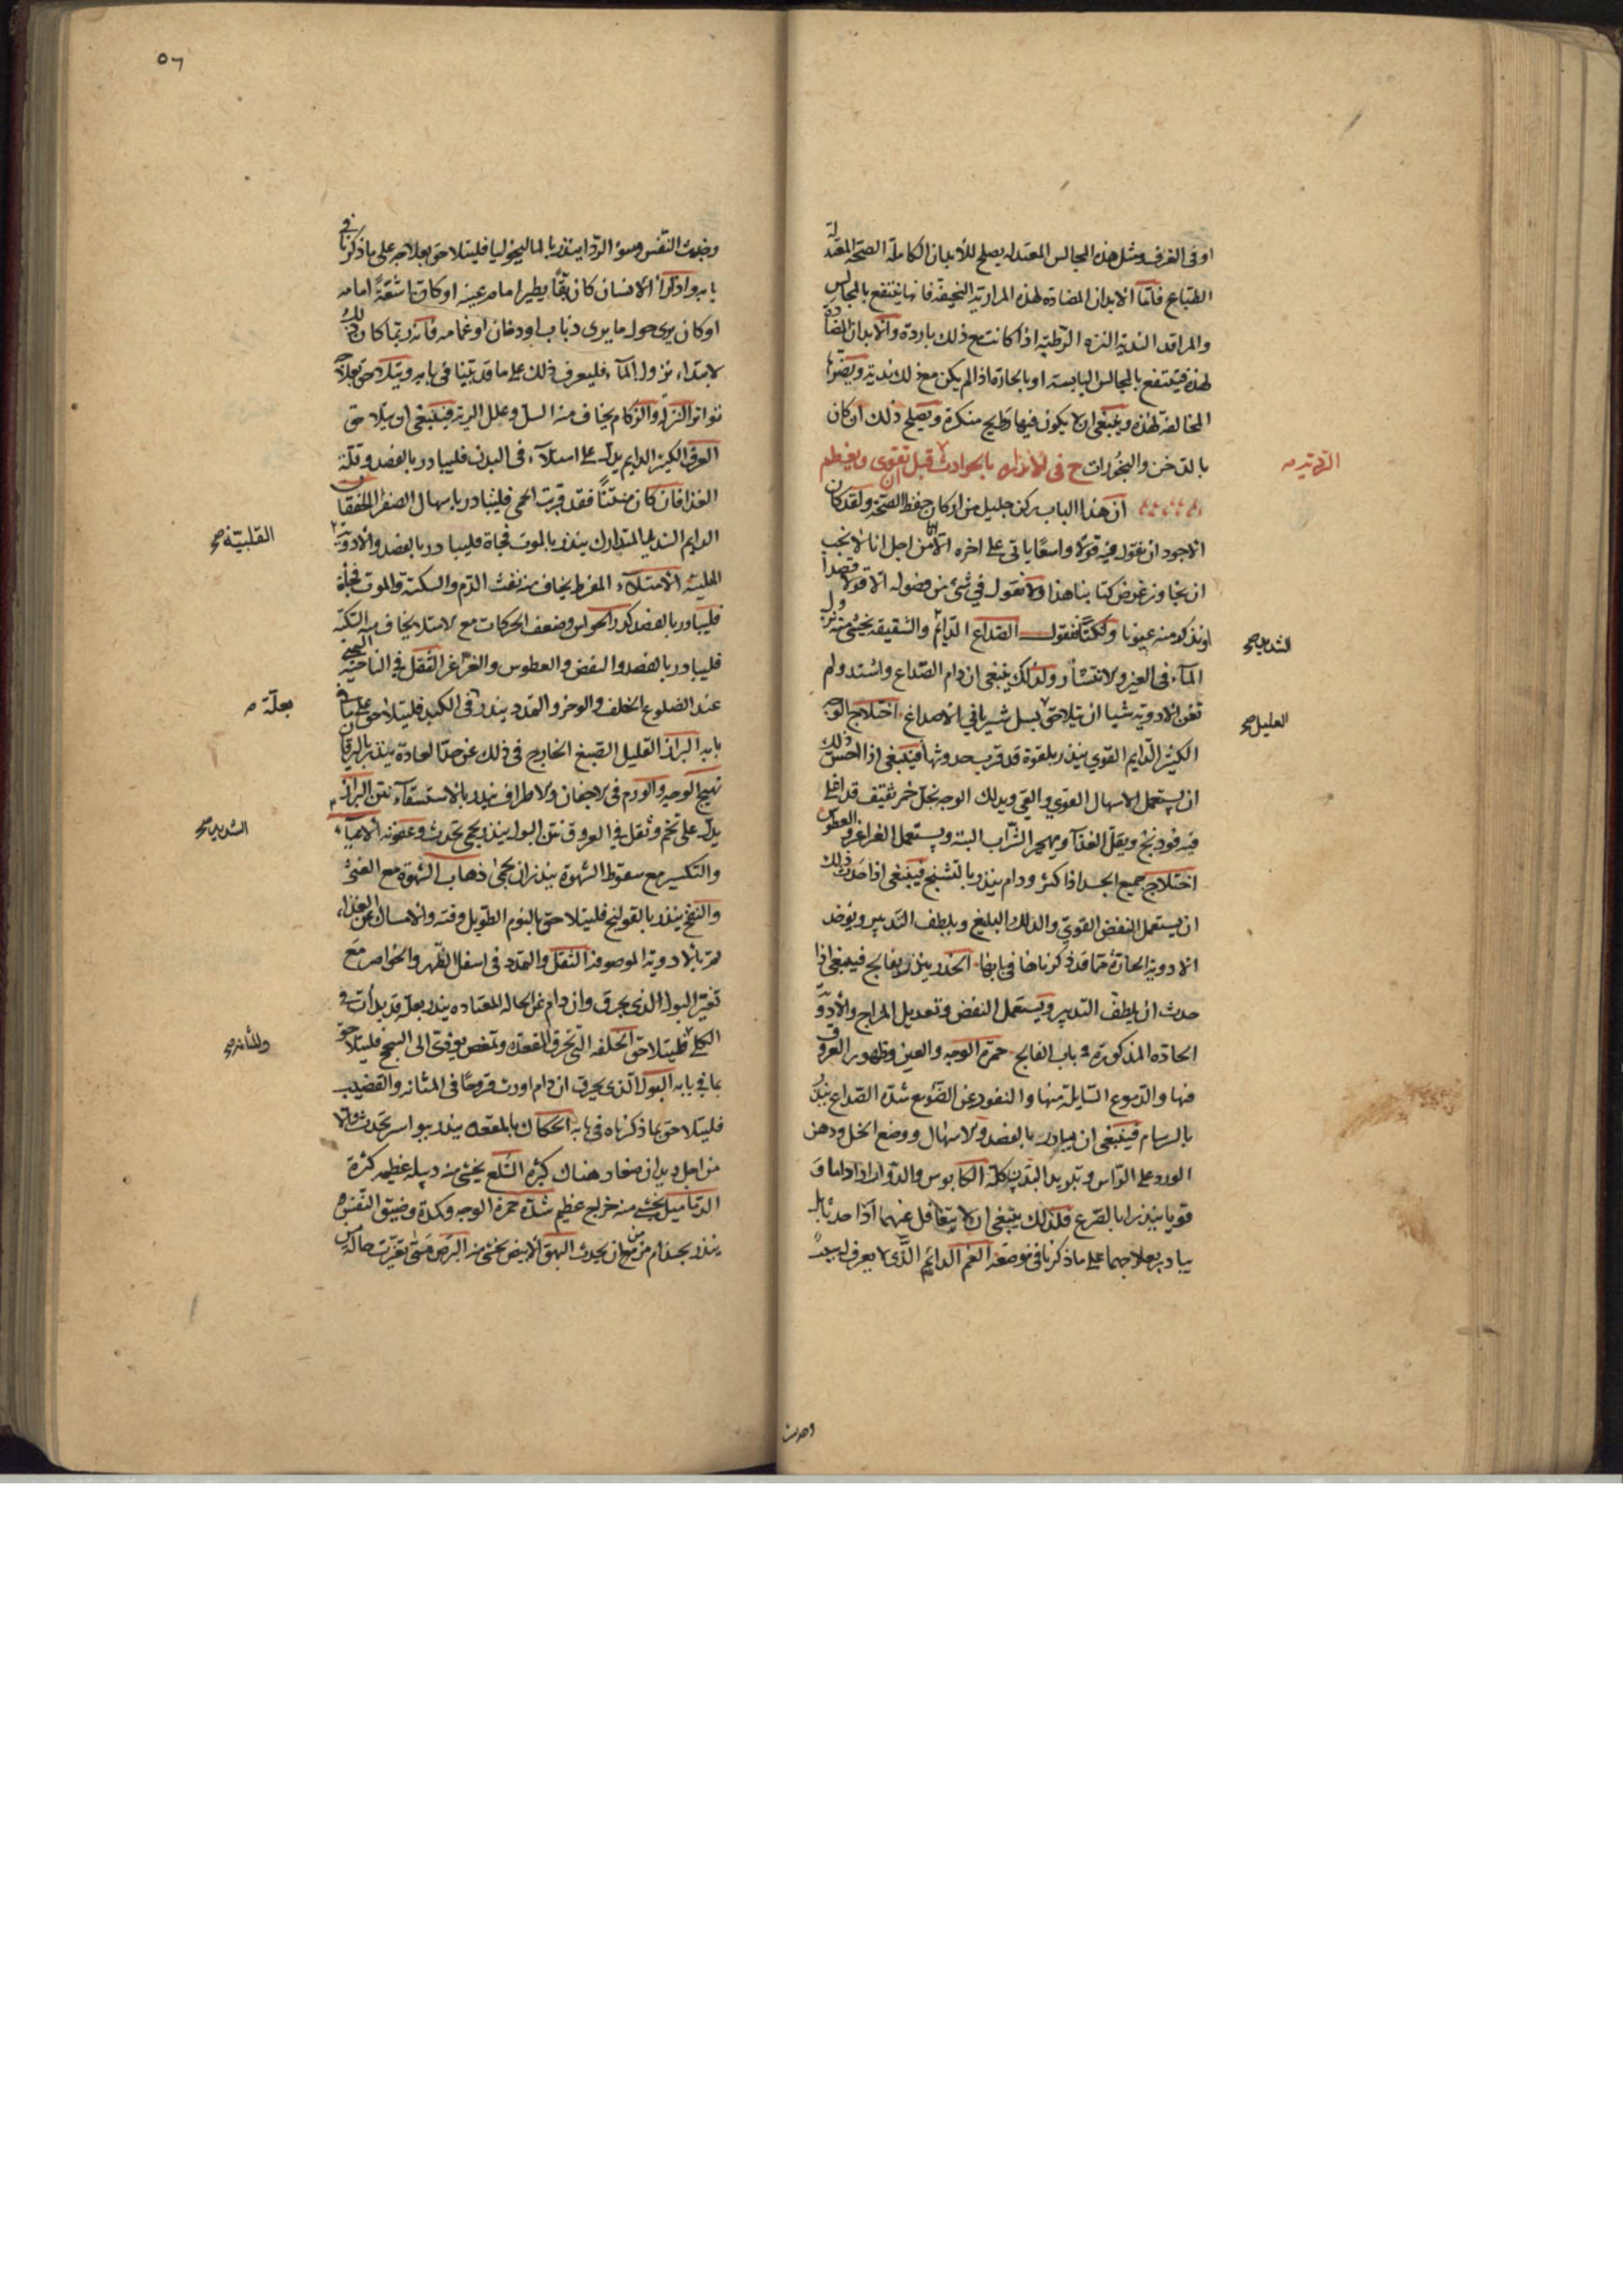 او في الغرف ومثل هذه المجالس المعتدلة يصلح للأبدان الكاملة الصحة المعتدلة
الطباع فاما الابدان المضادة لهذه المرارية النحيفة فانها ينتفع بالمجالس
والمراقد الندية النزه الرطبة اذا كانت مع ذلك باردة والابدان المضادة
لهذه فينتفع بالمجالس اليابسة او بالحارة اذا لم يكن مع ذلك ندية ويضرها
المخالفة لهذه وينبغي ان لا يكون فيها روايح منكرة ويصلح ذلك ان كان
بالدخن والبخورات ح في الانذار بالحوادث قبل ان تقوى ويعظم
الردية صح
ان هذا الباب ركن جليل من اركان حفظ الصحة ولقد كان
الاجود ان نقول فيه قولا واسعا ياتي على اخره الا انا من اجل انا لا نحب
ان نجاوز غرض كتابنا هذا ولا نقول في شئ من فصوله الا قولا قصدا
او نذكر منه عيونا ونكتا فنقول الصداع الدائم والشقيقة يخشى منه نزول
الشديد صح
الماء في العين والانتشار ولذلك ينبغي ان دام الصداع واشتد ولم
تغن الادوية شيا ان يتلاحق بسل شريانى الاصداغ اختلاج الوجه
العليل صح
الكثير الدايم القوي ينذر بلقوة قد قرب حدوثها فينبغي اذا احس ذلك
ان يستعمل الاسهال القوي والقي ويدلك الوجه بخل خمر ثقيف قد اغلي
فيه فودنج ويقل الغذآ ويهجر الشراب البتة ويستعمل الغراغر والعطوس
اختلاج جميع الجسد اذا كثر ودام ينذر بالتشنج فينبغي اذا حدث ذلك
ان يستعمل النفض القوي والدلك البليغ ويلطف التدبير ويوخذ
الادوية الحارة مما قد ذكرناها في بابها الخدر ينذر بفالج فينبغي اذا
حدث ان يلطف التدبير ويستعمل النفض وتعديل المزاج والأدوية
الحادة المذكورة في باب الفالج حمرة الوجه والعين وظهور العروق
فيها والدموع السايلة منها والنفور عن الضوء مع شدة الصداع ينذر
بالبرسام فينبغي ان يبادر بالفصد والاسهال ووضع الخل ودهن
الورد على الراس وتبريد البدن كله الكابوس والدوار اذا داما و
قويا ينذرا بالصرع فلذلك ينبغي ان لا يتغافل عنهما اذا حدثا بل
يبادر بعلاجهما على ما ذكرنا في موضعه الغم الدائم الذى لا يعرف له سببا
وخبث
٥٦
وخبث النفس وسوء الرد ينذر بالماليخوليا فليتلاحق بعلاجه على ما ذكرنا في
بابه واذا رأى الانسان كان بقا يطير امام عينه او كان شقة امامه
او كان يرى حول ما يرى ضباب او دخان او غمامه فانه ربما كان ذلك
لابتداء نزول المآء فليعرف ذلك على ما قد بينا في بابه ويتلاحق بعلاجه
تواتر النزلة والزكام يخاف منه السل وعلل الرية فينبغي ان يتلاحق
العرق الكثير الدايم يدل على امتلآء في البدن فليبادر بالفصد وقلة
الغذا فان كان منتنا فقد قربت الحمى فليبادر باسهال الصفرا الخفقان
الدايم الشديد المتدارك ينذر بالموت فجاة فليبادر بالفصد والأدوية
القلبية صح
الملينة الامتلآء المفرط يخاف منه نفث الدم والسكتة والموت فجأة
فليبادر بالفصد كدر الحواس وضعف الحركات مع الامتلا يخاف منه السكتة
فليبادر بالفصد والنفض والعطوس والغراغر الثقل في الناحية اليمنى
عند الضلوع الخلف والوخز والتمدد ينذر في الكبد فليتلاحق على ما في
بعلة صح
بابه البراز القليل الصبغ الخارج في ذلك عن حد العادة ينذر باليرقان
تهيج الوجه والورم في الاجفان والاطراف ينذر بالاستسقآء نتن البراز
يدل على تخم وثقل في العروق نتن البول ينذر بحمى تحدث وعفونه الاعياء
الشديد صح
والتكسير مع سقوط الشهوة ينذران بحمى ذهاب الشهوة مع الغثى
والنفخ ينذر بالقولنج فليتلاحق بالنوم الطويل وقته والامساك عن الغذاء
ثم بالادوية الموصوفة الثقل والتمدد في اسفل الظهر والخواصر مع
تغير البول الذي يحرق وان دام عن الحاله المعتاده ينذر بعلة قد بدأت في
الكلى فليتلاحق الخلفه التي تحرق المقعدة وتمغص يؤدى الى السحج فليتلاحق
وللمثانة صح
بما في بابه البول الذى يحرق ان دام اورث قروحا في المثانه والقضيب
فليتلاحق بما ذكرناه في بابه الحكاك بالمقعدة ينذر ببواسير تحدث والا
من اجل ديدان صغار هناك كثرة السلع يخشى منه دبيله عظيمه كثرة
الدماميل يخشى منه خراج عظيم شدة حمرة الوجه وكمدة وضيق النفس
ينذر بجذام مزمع ان يحدث البهق الابيض يخشى منه البرص متى تغيرت حالة من